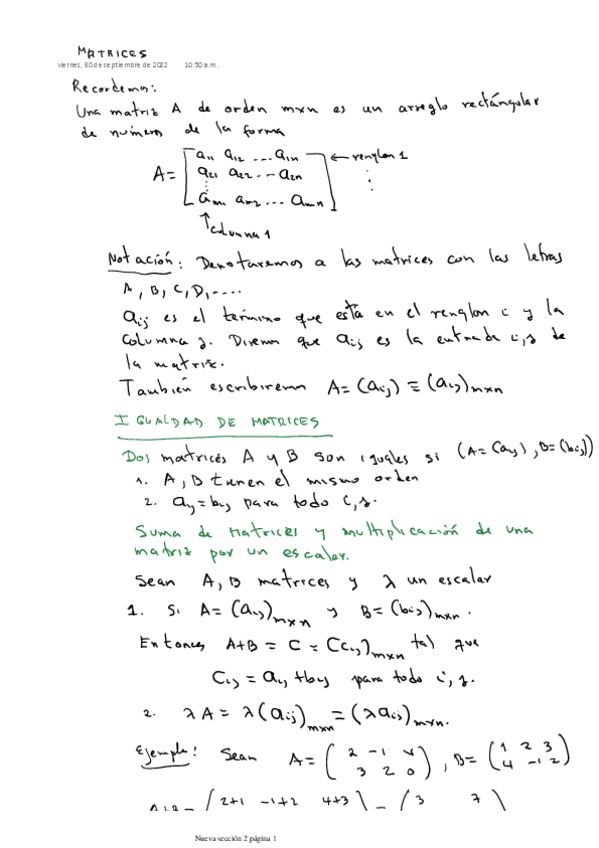 MATRICES
viernes, 30 de septiembre de 2022 10:50 a.m.
Recordemos:
Una matriz A de orden mxn es un arreglo rectángular
de números de la forma
A = [ a11 a12 ... a1n ← renglon 1
a21 a22 ... a2n ⋮
⋮
am1 am2 ... amn ]
↑ columna 1
Notación: Denotaremos a las matrices con las letras
A, B, C, D, ....
aij es el termino que está en el renglon i y la
columna j. Diremos que aij es la entrada i,j de
la matriz.
También escribiremos A = (aij) ≡ (aij)mxn
IGUALDAD DE MATRICES
Dos matrices A y B son iguales si (A = (aij), B = (bij))
1. A, B tienen el mismo orden
2. aij = bij para todo i, j.
Suma de Matrices y multiplicación de una
matriz por un escalar.
Sean A, B matrices y λ un escalar
1. Si A = (aij)mxn y B = (bij)mxn.
Entonces A+B = C = (cij)mxn tal que
cij = aij + bij para todo i, j.
2. λA = λ(aij)mxn = (λaij)mxn.
Ejemplo: Sean A = ( 2 -1 4 , B = ( 1 2 3
3 2 0 ) 4 -1 2 )
A+B = ( 2+1 -1+2 4+3 ) = ( 3 7 )
Nueva sección 2 página 1